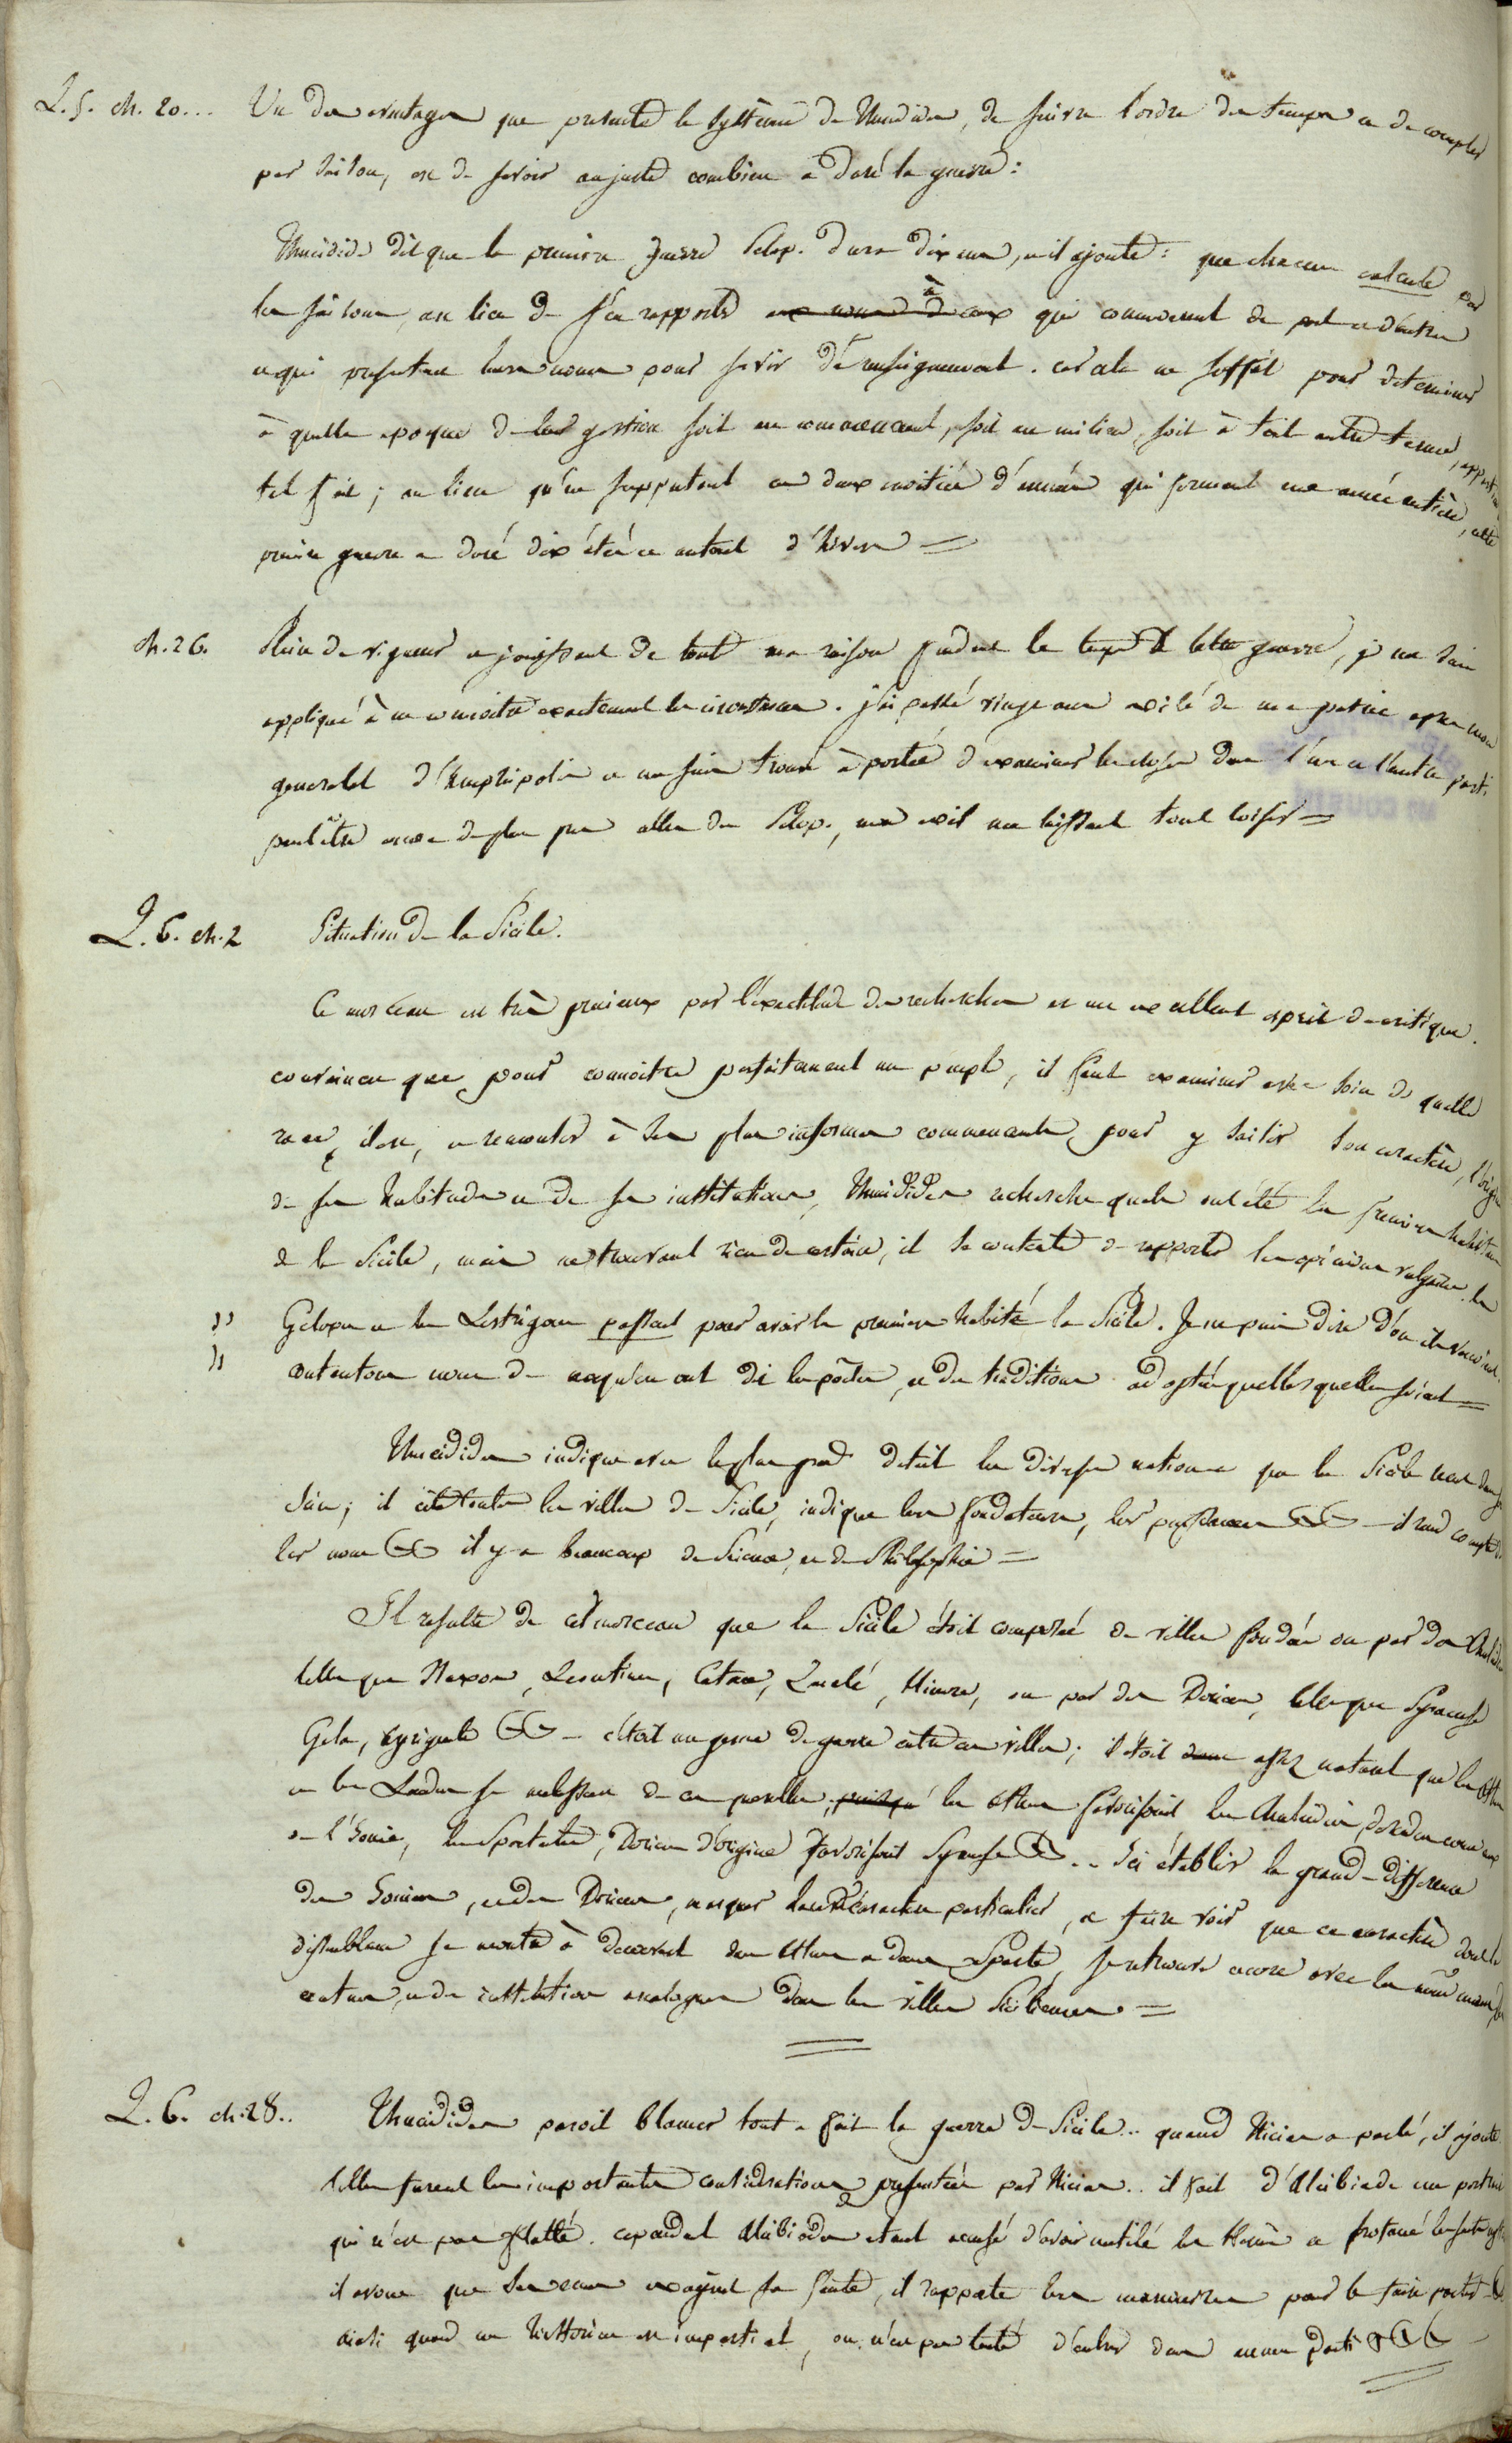 L. 5. ch. 20... Un des avantages que presente le systême de Thucidides, de suivre l'ordre des temps et de compter
par saison, est de savoir au juste combien a duré la guerre:
Thucidide dit que la premiere guerre Pelop. dura dix ans, et il ajoute: que chacun calcule par
les saisons, au lieu de s'en rapporter à ceux qui commandent de part et d'autre
et qui pretent leurs noms pour servir de renseignement. car cela ne suffit pour determiner
à quelle epoque de leur gestion soit au commencement, soit au milieu, soit à tout autre terme, appartient
tel fait; au lieu qu'en supputant ces deux moitiés d'années qui forment une année entière, cette
premiere guerre a duré dix étés et autant d'hivers =
ch. 26. Plein de vigueur et jouissant de toute ma raison pendant le temps de cette guerre, je me suis
appliqué à en connoitre exactement les circonstances. j'ai passé vingt ans exilé de ma patrie après mon
generalat d'Amphipolis et me suis trouvé à portée d'examiner les choses dans l'un et l'autre parti
peut être encore de plus près celles du Pelop., mon exil me laissant tout loisir =
L. 6. ch. 2 Situation de la Sicile.
Ce morceau est très precieux par l'exactitude des recherches et un excellent esprit de critique.
convaincu que pour connoitre parfaitement un peuple, il faut examiner avec soin de quelle
race il est, et remonter à ses plus informes commencements, pour y saisir son caractère, l'origine
de ses habitudes et de ses institutions, Thucidides recherche quels ont été les premiers habitans
de la Sicile, mais ne trouvant rien de certain, il se contente de rapporter les opinions vulgaires. les
" Cyclopes et les Lestrigons passent pour avoir les premiers habité la Sicile. Je ne puis dire d'où ils venoient.
" contentons nous de ce qu'en ont dit les poëtes, et des traditions adoptées quelles quelles soient =
Thucidides indique avec le plus grand detail les diverses nations que la Sicile reçut dans son
sein; il cite toutes les villes de Sicile, indique leurs fondateurs, leur puissance && - il rend compte de
leur nom && il y a beaucoup de Science, et de Philosophie =
Il resulte de ce morceau que la Sicile étoit composée de villes fondées ou par des Chalcidiens
telles que Naxos, Leontium, Catane, Zanclé, Himere, ou par des Doriens, telles que Syracuse
Gela, Agrigente && - c'étoit un germe de guerre entre ces villes; il étoit assez naturel que les Athen.
et les Laced. se melassent de ces querelles, les Athen. favorisoient les Chalcidiens, descendans comme eux
de l'Ionie, les Spartiates, Doriens d'origine favorisoient Syracuse &&.. Ici établir la grande difference
des Ioniens, et des Doriens, marquer leur caractere particulier, et faire voir que ce caractère double
dissemblable se montre à decouvert dans Athenes et dans Sparte, se retrouve encore avec les
et des institutions analogues dans les villes Siciliennes =
L. 6. ch. 28.. Thucidides paroit blamer tout à fait la guerre de Sicile.. quand Nicias a parlé, il ajoute
telles furent les importantes considerations presentées par Nicias.. il fait d'Alcibiade un portrait
qui n'est pas flatté. cependant Alcibiade étant accusé d'avoir mutilé les Hermès et profané les
il avoue que ses exagerent sa faute, il rapporte leurs manoeuvres pour le faire
ainsi quand un historien est impartial, on n'est pas tenté d'entrer dans aucun parti &&&